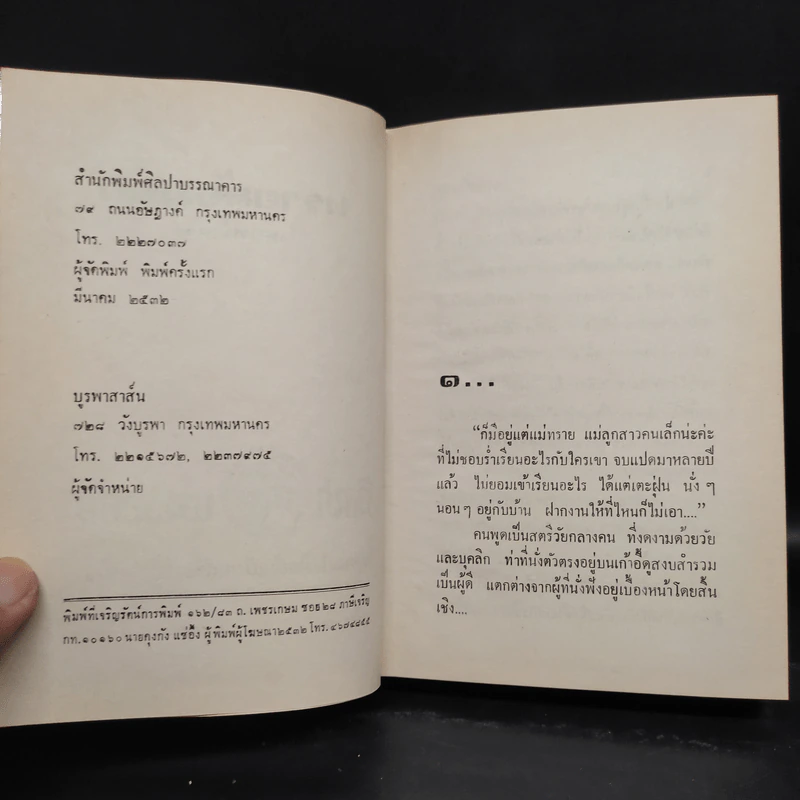 สำนักพิมพ์ศิลปาบรรณาคาร
๗๙ ถนนอัษฎางค์ กรุงเทพมหานคร
โทร. ๒๒๒๗๐๓๗
ผู้จัดพิมพ์ พิมพ์ครั้งแรก
มีนาคม ๒๕๓๒
บูรพาสาส์น
๗๒๘ วังบูรพา กรุงเทพมหานคร
โทร. ๒๒๑๕๖๗๒, ๒๒๓๗๙๗๕
ผู้จัดจำหน่าย
พิมพ์ที่เจริญรัตน์การพิมพ์ ๑๖๒/๘๓ ถ. เพชรเกษม ซอย๒๘ ภาษีเจริญ
กท.๑๐๑๖๐ นายคุงกัง แซ่อึ้ง ผู้พิมพ์ผู้โฆษณา๒๕๓๒ โทร. ๔๖๗๔๘๕๕
๑...
“ก็มีอยู่แต่แม่ทราย แม่ลูกสาวคนเล็กน่ะค่ะ
ที่ไม่ชอบร่ำเรียนอะไรกับใครเขา จบแปดมาหลายปี
แล้ว ไม่ยอมเข้าเรียนอะไร ได้แต่เตะฝุ่น นั่ง ๆ
นอน ๆ อยู่กับบ้าน ฝากงานให้ที่ไหนก็ไม่เอา....”
คนพูดเป็นสตรีวัยกลางคน ที่งดงามด้วยวัย
และบุคลิก ท่าที่นั่งตัวตรงอยู่บนเก้าอี้ดูสงบสำรวม
เป็นผู้ดี แตกต่างจากผู้ที่นั่งฟังอยู่เบื้องหน้าโดยสิ้น
เชิง....